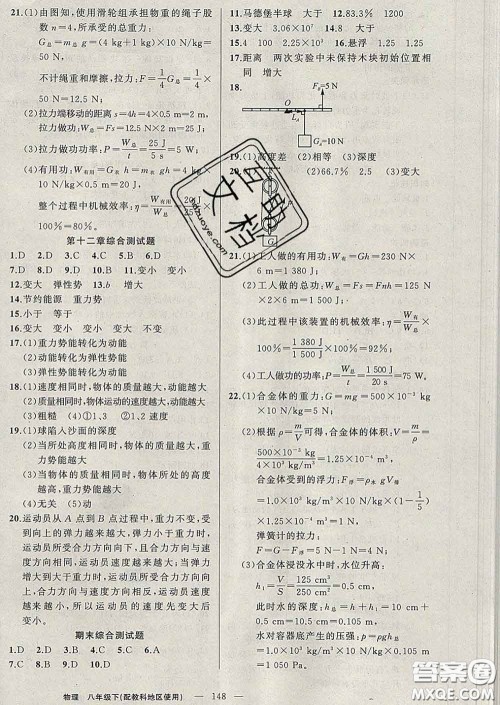 21.(1)由图知，使用滑轮组承担物重的绳子股
数 n=4，所承受的总重力：
G总=m总g=(4 kg+1 kg)×10 N/kg=
50 N
不计绳重和摩擦，拉力：F=1/4 G总=1/4×
50 N=12.5 N
(2)拉力端移动的距离 s=4h=4×0.5 m=2 m，
拉力做功：W总=Fs=12.5 N×2 m=25 J
(3)拉力做功功率：P=W总/t=25 J/5 s=5 W
(4)有用功：W有用=Gh=4 kg×10 N/kg×0.5 m=20 J
整个过程中机械效率：η=W有用/W总=20 J/25 J×
100%=80%。
第十二章综合测试题
1.D 2.D 3.C 4.C 5.B 6.D
7.D 8.D 9.A 10.D 11.变大 变小
12.变大 弹性势 13.变小 变小 变小
14.节约能源 重力势
15.小于 等于 16.变大 不变 变小
17.(1)重力势能转化为动能
(2)动能转化为弹性势能
(3)弹性势能转化为动能
18.(1)速度相同时，物体的质量越大，动能越大
(2)质量相同时，物体运动的速度越大，动能越大
(3)粗糙 (4)①1,3 ②3,4
19.(1)球陷入沙面的深度
(2)当物体的高度相同时，物体的质量越大，
重力势能越大
(3)当物体的质量相同时，物体所处的高度
越高，重力势能越大
(4)无关 (5)动
20.运动员从 A 点到 B 点过程中，重力不变，受
到向上的弹力越来越大，当重力大于弹力
时，运动员所受合力方向向下，且合力方向与速
度方向相同，运动员速度越来越大。当弹力
增大到大于重力时，运动员所受合力方向
向上，且合力方向与速度方向相反，运动员速度
越来越小，所以运动员的速度先变大后
变小。
期末综合测试题
1.D 2.D 3.D 4.B 5.A 6.D
7.C 8.B 9.D 10.D
11.马德堡半球 大于 12.83.3% 1200
13.变大 3.06×10⁷ 14.大于 大于
15.4 100 0.29 16.悬浮 1.25
17.距离 两次实验中未保持木块初始位置相
同 增大
18.
F₂=5 N
O
L₂
G₂=10 N
19.(1)高度差 (2)相等 (3)深度
(2)66.7% 2.5 (3)变大
21.(1)工人做的有用功：W有=Gh=460 N×3 m=
1 380 J
(2)工人做的总功：W总=Fs=250 N×2×3 m
=1 500 J
(3)此过程中该装置的机械效率：η=W有/W总
×100%=1 380 J/1 500 J×100%=92%
(4)工人做功的功率：P=W总/t=1 500 J/20 s=75 W
22.(1)合金体的重力：G=mg=500×10⁻³ kg
×10 N/kg=5 N
(2)根据 ρ=m/V可得，合金体的体积：V=m/ρ=
500×10⁻³ kg/4×10³ kg/m³=1.25×10⁻⁴ m³
合金体受到的浮力：F浮=ρ水gV
=1.0×10³ kg/m³×10 N/kg×1.25×10⁻⁴ m³
=1.25 N
弹簧计的拉力：
F=G-F浮=5 N-1.25 N=3.75 N
(3)合金体浸没水中时，水位升高：
h₁=V/S=125 cm³/250 cm²=0.5 cm
h=10 cm+0.5 cm=10.5 cm=0.105 m
水对容器底产生的压强：p=ρ水gh
=1.0×10³ kg/m³×10 N/kg×0.105 m
=1 050 Pa。
物理 八年级下(配教科地区使用) — 148 —
答案圈
MXQE.COM